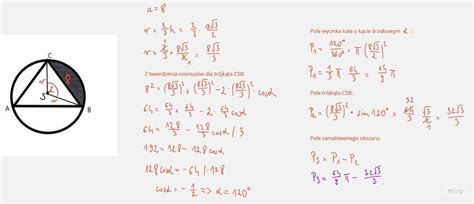 a = 8
r = 2/3 h = 2/3 · a√3/2
r = 2/3 · 8√3/2 = 8√3/3
Z twierdzenia cosinusów dla trójkąta CSB:
8² = (8√3/3)² + (8√3/3)² - 2 · (8√3/3)² · cosα
64 = 64/3 + 64/3 - 2 · 64/3 cosα
64 = 128/3 - 128/3 cosα / · 3
192 = 128 - 128 cosα
128 cosα = - 64 / : 128
cosα = - 1/2 => α = 120°
C
r
α
S
r
A
B
Pole wycinka koła o kącie środkowym α :
P₁ = 120°/360° · π (8√3/3)²
P₁ = 1/3 π · 64/3 = 64/9 π
Pole trójkąta CSB:
P₂ = (8√3/3)² · sin120° = 64/3 · √3/2 = 32√3/3
Pole zamalowanego obszaru:
P₃ = P₁ - P₂
P₃ = 64/9 π - 32√3/3
miro